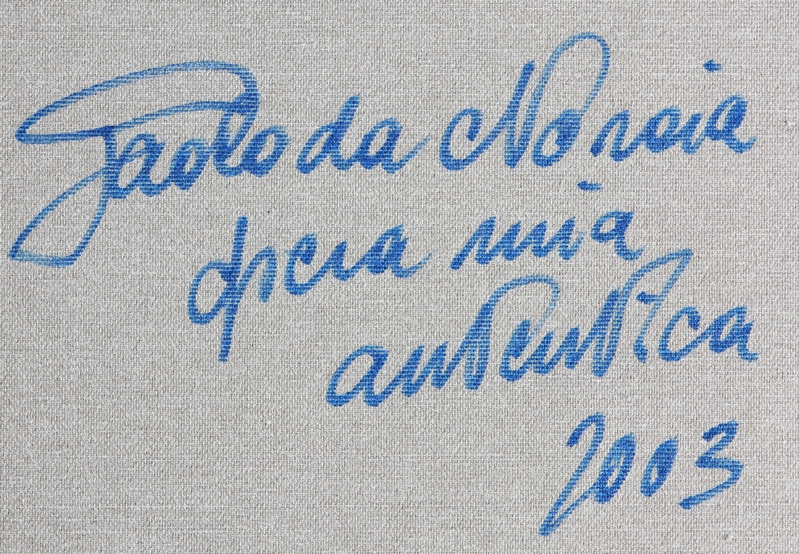 Paolo da Norcia
opera mia
autentica
2003